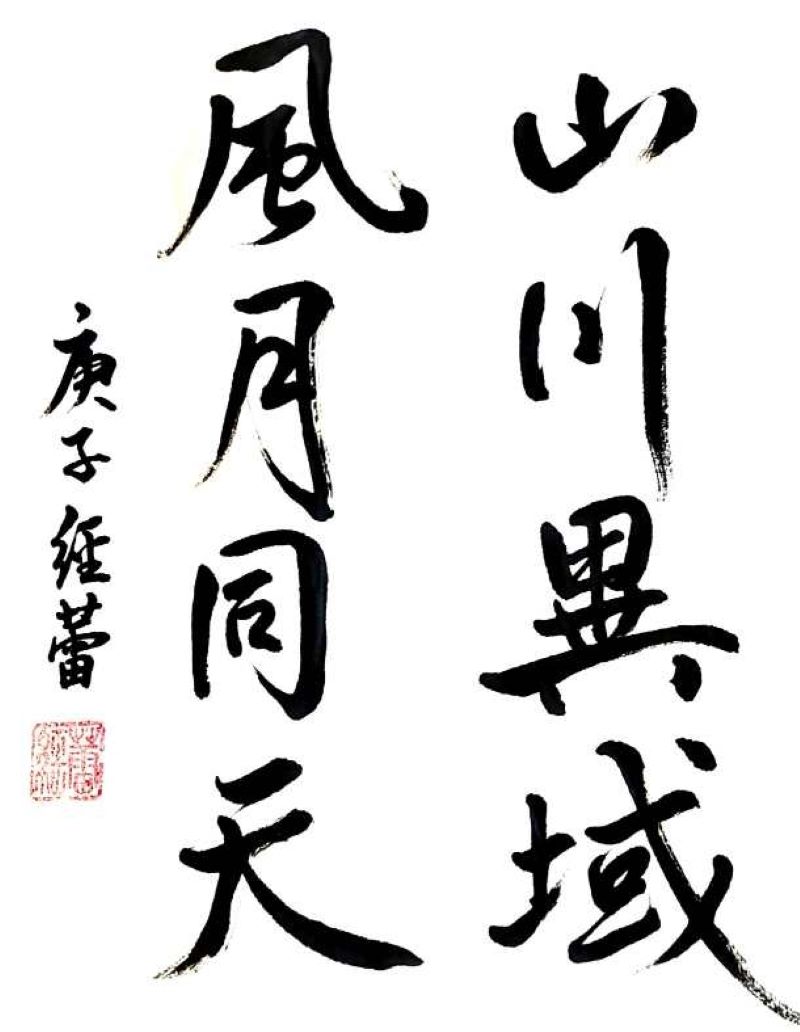 山川異域
風月同天
庚子經蕾